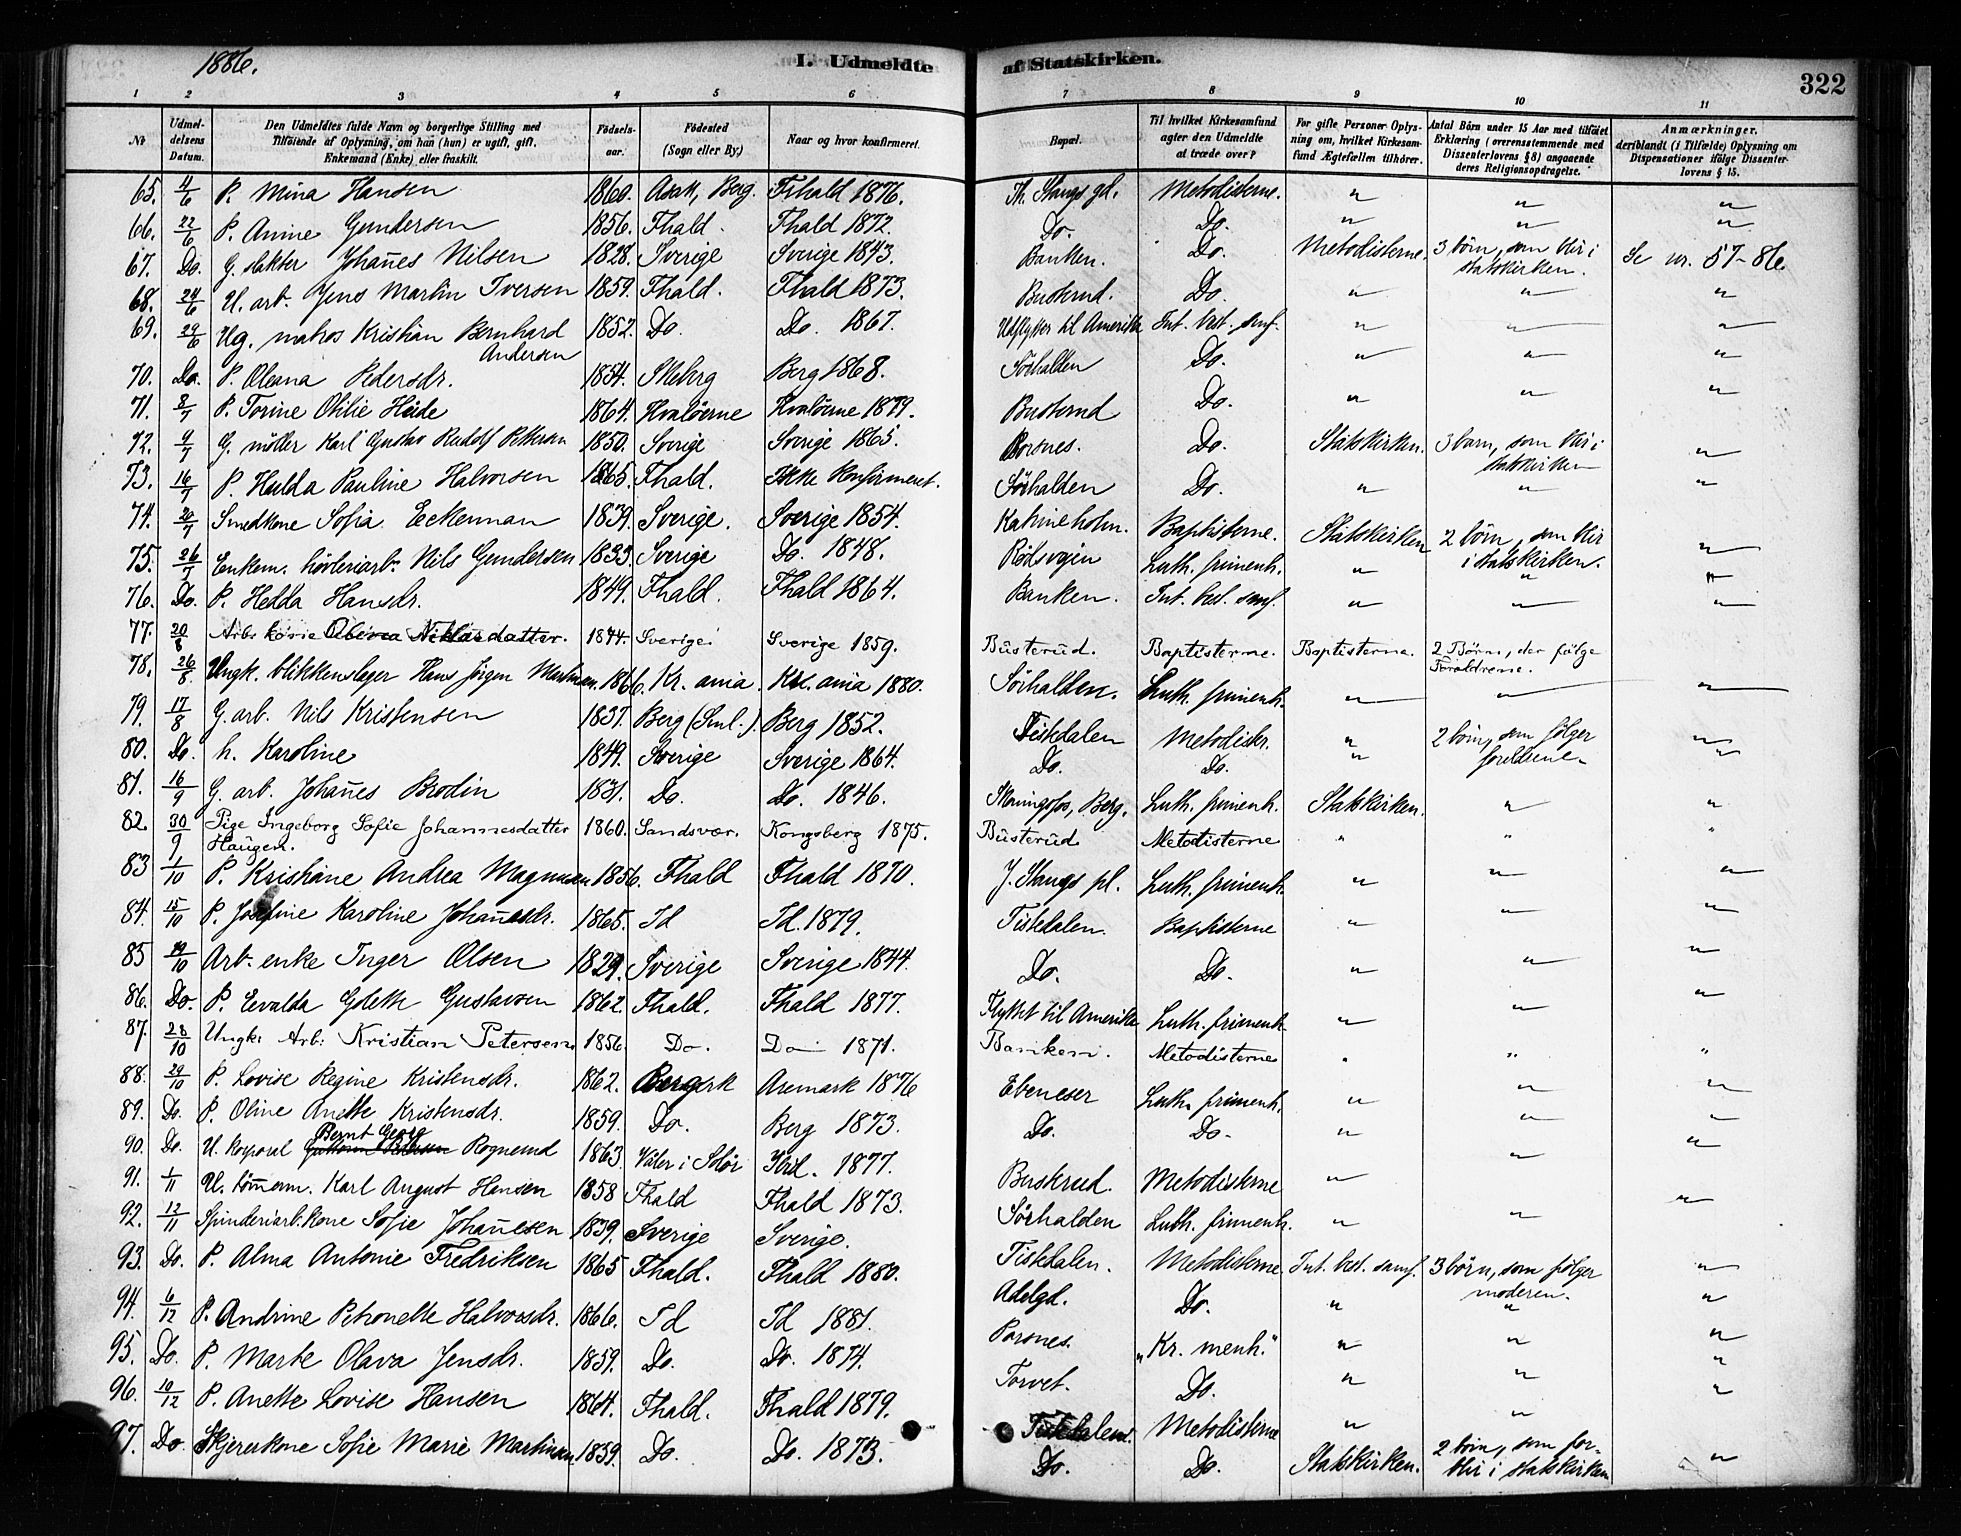 1886.
I. Udmeldte af Statskirken.
322
1 2 3 4 5 6 7 8 9 10 11
No
Udmeldelsens Datum.
Den Udmeldtes fulde Navn og borgerlige Stilling med
Tilføiende af Oplysning, om han (hun) er ugift, gift,
Enkemand (Enke) eller fraskilt.
Fødselsaar.
Fødested
(Sogn eller By.)
Naar og hvor konfirmeret.
Bopæl.
Til hvilket Kirkesamfund
agter den Udmeldte
at træde over?
For gifte Personer Oplysning om, hvilket Kirkesamfund Ægtefællen tilhører.
Antal Børn under 15 Aar med tilføiet
Erklæring (overensstemmende med
Dissenterlovens § 8) angaaende
deres Religionsopdragelse.
Anmærkninger,
deriblandt (i Tilfælde) Oplysning om
Dispensationer ifølge Dissenterlovens § 15.
65. 4/6 P. Mina Hansen 1860. Asak, Berg. Fhald 1876. Th. Stangs gd. Metodisterne. " " "
66. 22/6 P. Anine Gundersen 1856. Fhald. Fhald 1872. Do. Do. " " "
67. Do. G. slakter Johañes Nilsen 1828. Sverige Sverige 1843. Banken. Do. Metodisterne. 3 börn, som blir i statskirken. Se nr. 57-86.
68. 24/6 U. arb. Jens Martin Iversen 1859. Fhald. Fhald 1873. Busterud. Do. " " "
69. 29/6 Ug. matros Kristian Bernhard Andersen 1852. Do. Do. 1867. Udflytter til Amerika Int. best. smf. " " "
70. Do. P. Oleana Pedersdr. 1854. Berg 1868. Sörhalden Do. " " "
71. 8/7 P. Torine Otilie Heide 1864. Hvalöerne Hvalöerne 1879. Busterud Do. " " "
72. 9/7 G. möller Karl Gustav Rudolf Pettersen 1850. Sverige Sverige 1865. Porsnes. Do. Statskirken. 3 barn, som blir i statskirken "
73. 16/7 P. Hulda Pauline Halvorsen 1865. Fhald. Ikke konfirmeret. Sörhalden Do. " " "
74. 20/7 Smedkone Sofia Eckerman 1839. Sverige. Sverige 1854. Katrineholm. Baptisterne. Statskirken 2 börn, som blir i statskirken. "
75. 26/7 Enkem. hövleriarb. Nils Gundersen 1833. Sverige Do. 1848. Rödsveien Luth. frimenh. " " "
76. Do. P. Hedda Hansdr. 1849. Fhald. Fhald 1864. Banken. Int. best. smf. " " "
77. 20/8 Arb. kone Niklasdatter. 1844. Sverige. Sverige 1859. Busterud. Baptisterne. Baptisterne. 2 Börn, der fölge Foraldrene.
78. 26/8 Ungk. blikkenslager Hans Jörgen 1866. Kr.ania. Kr.ania 1880. Sörhalden. Luth. frimenh. " " "
79. 17/8 G. arb. Nils Kristensen 1837. Berg (Sml.) Berg 1852. Tistedalen Metodistr. " 2 börn, som fölger foreldrene. "
80. Do. h. Karoline 1849. Sverige Sverige 1864. Do. Do. " "
81. 16/9 G. arb. Johañes Brodin 1831. Do. Do. 1846. Skoningsfos, Berg. Luth. frimenh. Statskirken. " "
82. 30/9 Pige Ingeborg Sofie Johannesdatter Haugen. 1860. Sandsvær. Kongsberg 1875. Busterud Metodisterne " " "
83 1/10 P. Kristiane Andrea Magnusen 1856. Fhald Fhald 1870. J. Stangs pl. Luth. frimenh. " " "
84. 15/10 P. Josefine Karoline Johañesdr. 1865. Id Id. 1879. Tistedalen. Baptisterne " " "
85 19/10 Arb. enke Inger Olsen 1829. Sverige Sverige 1844. Do. Do. " " "
86. Do. P. Evalda Gustavsen 1862. Fhald. Fhald 1877. Flyttet til Amerika Luth. frimenh. " " "
87. 28/10 Ungk. Arb. Kristian Petersen 1856. Do. Do 1871. Banken. Metodisterne " " "
88. 29/10 P. Lovise Regine Kristensdr. 1862. Aremark 1876 Ebeneser Luth. frimenh. " " "
89. Do. P. Oline Anette Kristensdr. 1859. Do. Berg 1873. Do. Do. " " "
90. Do. U. korporal Bernt Georg Rognerud 1863. Våler i Solör 1877. Buskrud. Metodisterne " " "
91. 1/11 U. tömerm. Karl August Hansen 1858 Fhald Fhald 1873. Sörhalden Luth. frimenh. " " "
92. 12/11 Spinderiarb. kone Sofie Johañesen 1839. Sverige Sverige. Tistedalen. Metodisterne. Int. best. samf. 3 börn, som fölger moderen. "
93. Do. P. Alma Antonie Fredriksen 1865 Fhald. Fhald 1880. Adelgd. Do. " " "
94. 6/12 P. Andrine Petronelle Halvorsdr. 1866. Id Id 1881. Porsnes. "Kr. menh." " " "
95. Do. P. Marte Olava Jensdr. 1859. Do. Do. 1874. Torvet. Do. " " "
96. 10/12 P. Anette Lovise Hansen 1864. Fhald. Fhald 1879. Tistedalen. Metodisterne " " "
97. Do. Skjærerkone Sofie Marie Martinsen 1859. Do. Do. 1873. Do. Do. Statskirken. 2 börn, som forblir i statskirken "